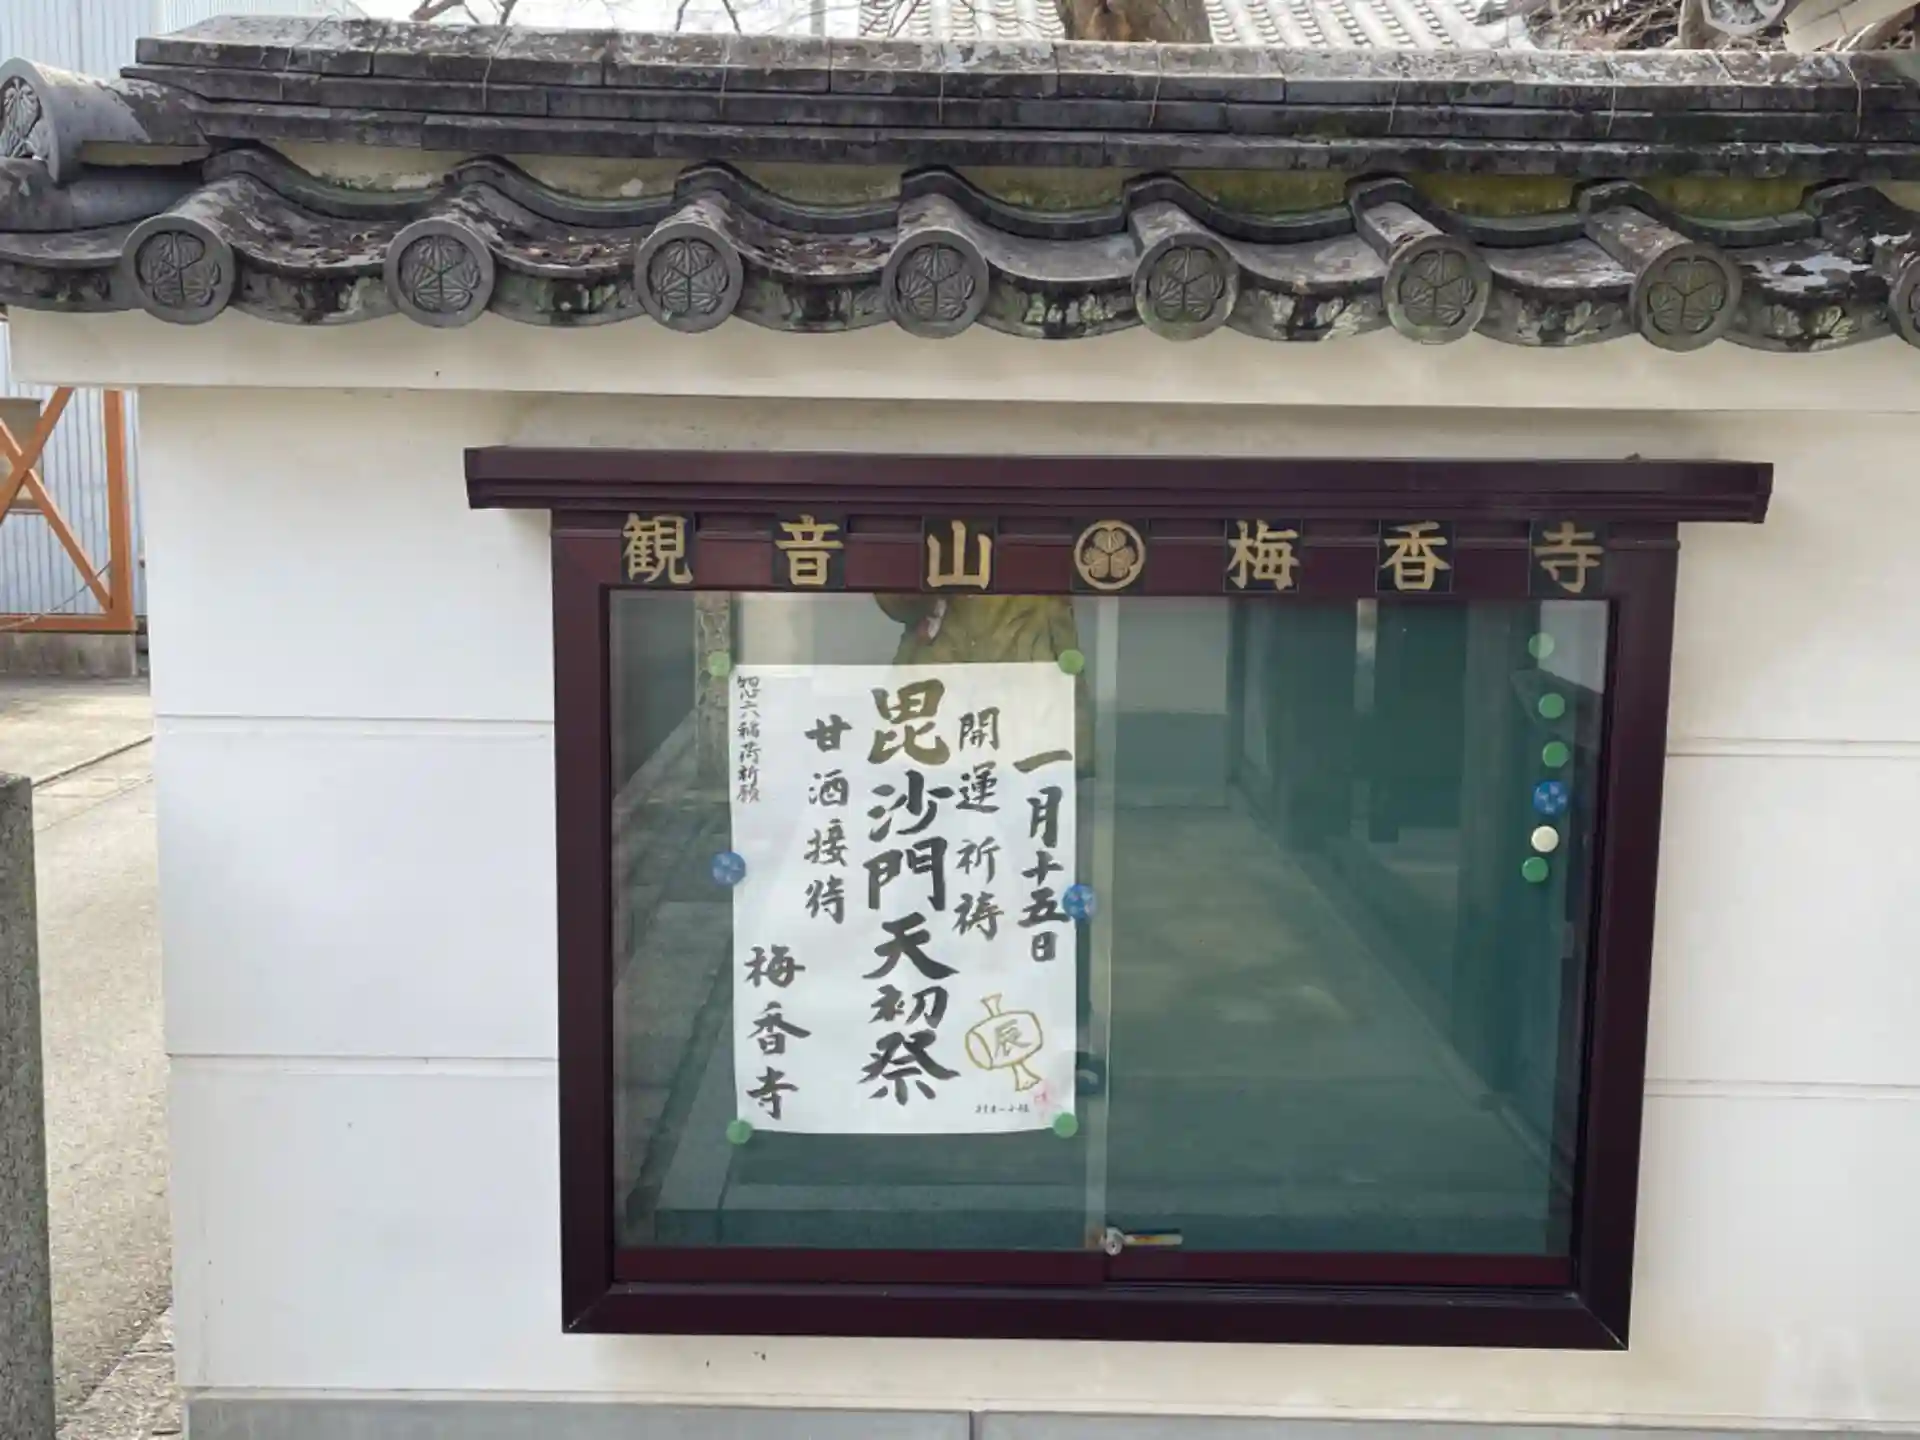 観音山 梅香寺
一月十五日
開運祈祷
毘沙門天初祭
甘酒接待
惣六稲荷祈願
梅香寺
辰